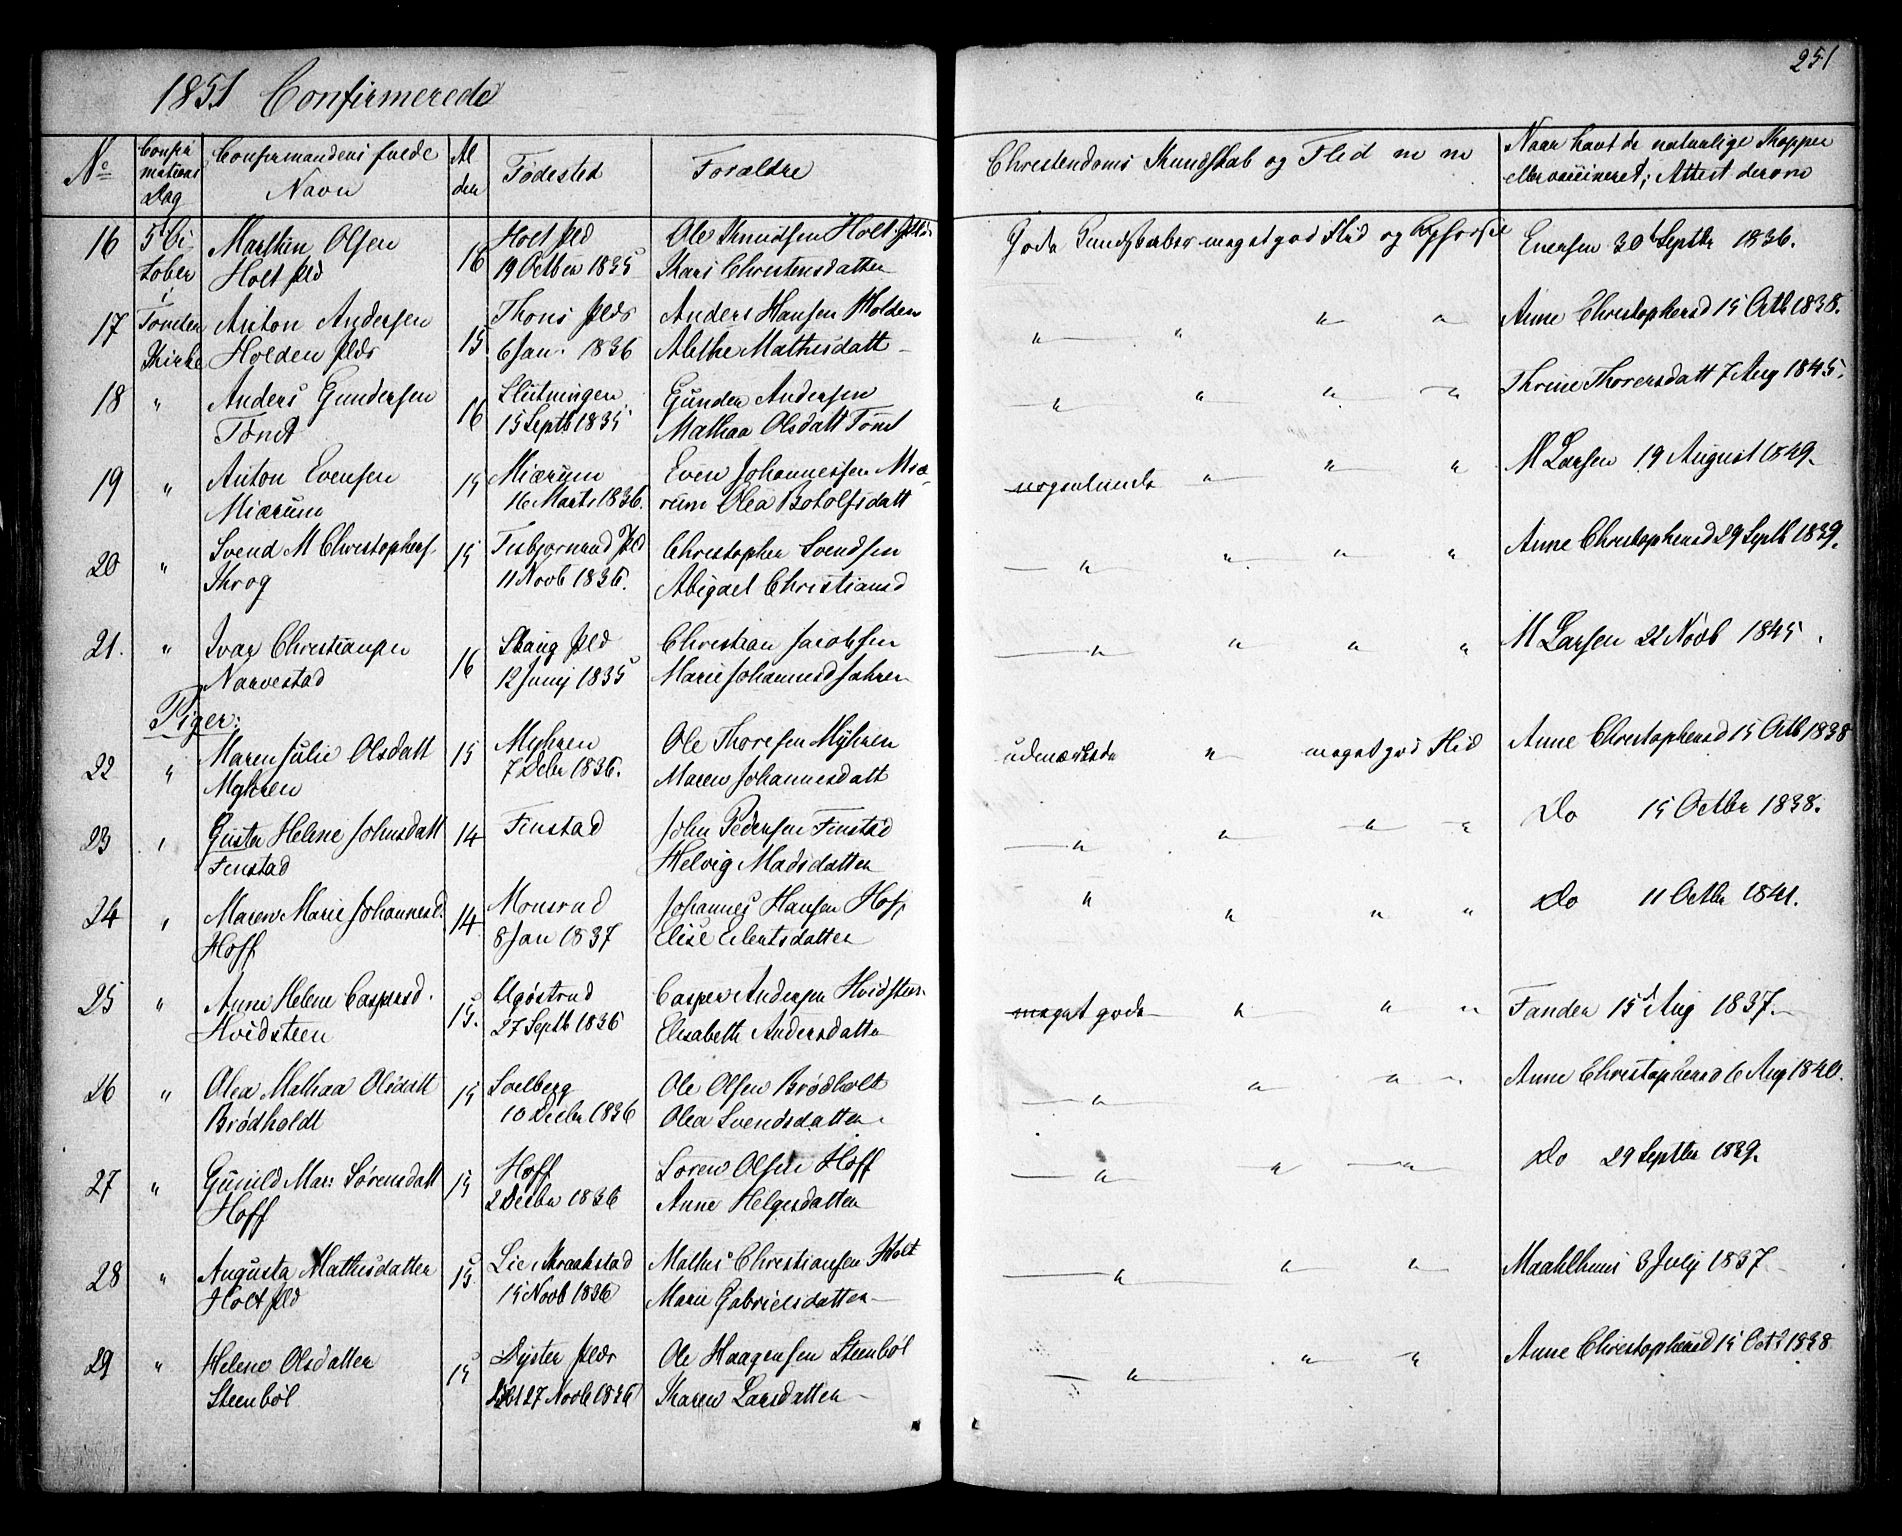 251
1851 Confirmerede
No
Confir
mations
Dag
Confirmandens fulde
Navn
Al
der
Fødested
Forældre
Christendoms Kundskab og Flid m m
Naar havt de naturlige Kopper
eller vaccineret; Attest derom
16 5t Oc Olsen 16 Holt pld Ole Knudsen Holt
tober Holt pld 19 October 1835 Kari Christensdatter
Gode Kundskaber meget god Flid og
30t Septbr 1836.
i
17 Tomter Anton Andersen 15 pldr Anders Hansen Holden
Kirke Holden pldr 6 Jan. 1836 Alethe Mathisdatt
" " " "
Anne Christophersd 15 Octb 1838.
18 " Anders Gundersen 16 Slutningen Gunder Andersen
Tomt 15 Septb 1835 Mathea Olsdatt Tomt
" " " "
Thrine Thorersdatt 7 Aug 1845.
19 " Anton Evensen 15 Miærum Even Johannessen Miæ
Miærum 16 Marts 1836. rum Olea Botolfsdatt
nogenlunde " " "
M Larsen 19 August 1849.
20 " Svend M Christophers 15 pld Christopher Svendsen
Krog 11 Novb 1836. Abigael Christiansd
" " " "
Anne Christophersd 29 Septb 1839.
21. " Ivar Christiansen 16 Skaug pld Christian Jacobsen
Narvestad 12 Junij 1835 Marie Johannesd
" " " "
M Larsen 22 Novb 1845.
Piger:
22 " Maren Julie Olsdatt 15 Myhren Ole Thoresen Myhren
Myhren 7 Decbr 1836. Maren Johannesdatt
udmærkede " meget god Flid
Anne Christophersd 15 Octb 1838
23 " Helene Johnsdatt 14 Finstad John Pedersen Finstad
Finstad Helvig Madsdatter
" " " "
Do 15 Octbr 1838.
24 " Maren Marie Johannesd. 14 Monsrud Johannes Hansen Hoff
Hoff 8 Jan 1837 Elise Eilertsdatter
" " " "
Do 11 Octbr 1841.
25 " Anne Helene Caspersd. 15. Casper Andersen Hvidsteen
Hvidsteen 27 Septb 1836 Elisabeth Andersdatter
meget gode " " "
Fanden 15d Aug 1837.
26 " Olea Mathea Olsdatt 15 Solberg Ole Olsen Brødholt
Brødholdt 10 Decbr 1836 Olea Svendsdatter.
" " " "
Anne Christophersd 6 Aug 1840.
27 " Gunild Mar: Sørensdatt 15 Hoff Søren Olsen Hoff
Hoff 2 Decbr 1836 Anne Helgesdatter
" " "
Do 29 Septbr 1839.
28 " Augusta Mathisdatter 15 Lie Kraakstad Mathis Christiansen Holt
Holt pld 15 Novb 1836 Marie Gabrielsdatter
" " "
3 July 1837
29 " Helene Olsdatter 15 Dyster pldr Ole Haagensen Steenbøl
Steenbøl 27 Novb 1836 Karen Larsdatter
" " "
Anne Christophersd 15 Oct 1838